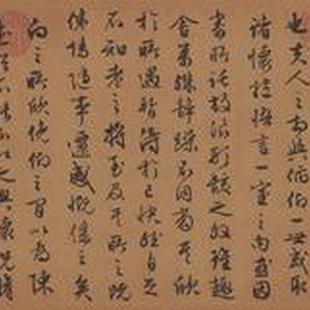 也夫人之相與俯仰一世或取
諸懷抱悟言一室之內或因
寄所託放浪形骸之外雖趣
舍萬殊靜躁不同當其欣
於所遇暫得於己快然自足
不知老之將至及其所之既
倦情隨事遷感慨係之矣
向之所欣俛仰之間以為陳
迹猶不能不以之興懷況脩